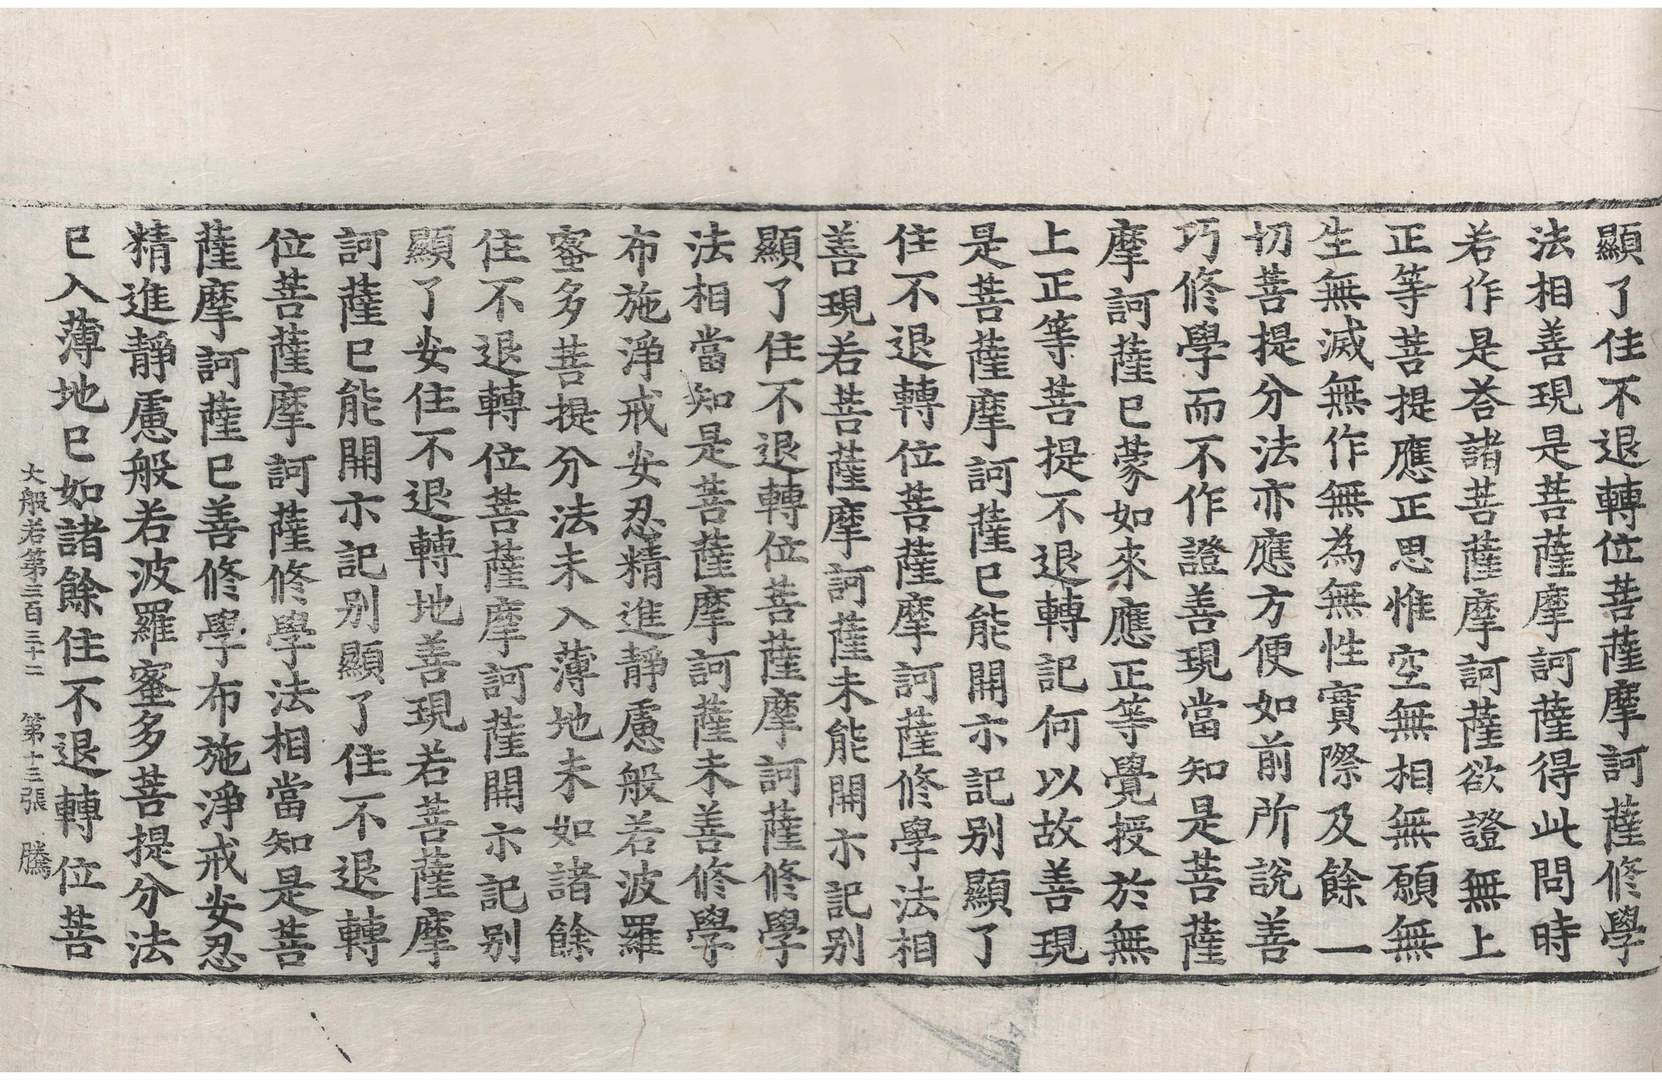 顯了住不退轉位菩薩摩訶薩修學
法相善現是菩薩摩訶薩得此問時
若作是荅諸菩薩摩訶薩欲證無上
正等菩提應正思惟空無相無願無
生無滅無作無為無性實際及餘一
切菩提分法亦應方便如前所說善
巧修學而不作證善現當知是菩薩
摩訶薩已蒙如來應正等覺授於無
上正等菩提不退轉記何以故善現
是菩薩摩訶薩已能開示記别顯了
住不退轉位菩薩摩訶薩修學法相
善現若菩薩摩訶薩未能開示記别
顯了住不退轉位菩薩摩訶薩修學
法相當知是菩薩摩訶薩未善修學
布施淨戒安忍精進靜慮般若波羅
蜜多菩提分法未入薄地未如諸餘
住不退轉位菩薩摩訶薩開示記别
顯了安住不退轉地善現若菩薩摩
訶薩已能開示記别顯了住不退轉
位菩薩摩訶薩修學法相當知是菩
薩摩訶薩已善修學布施淨戒安忍
精進靜慮般若波羅蜜多菩提分法
已入薄地已如諸餘住不退轉位菩
大般若第三百三十二 第十三張 騰